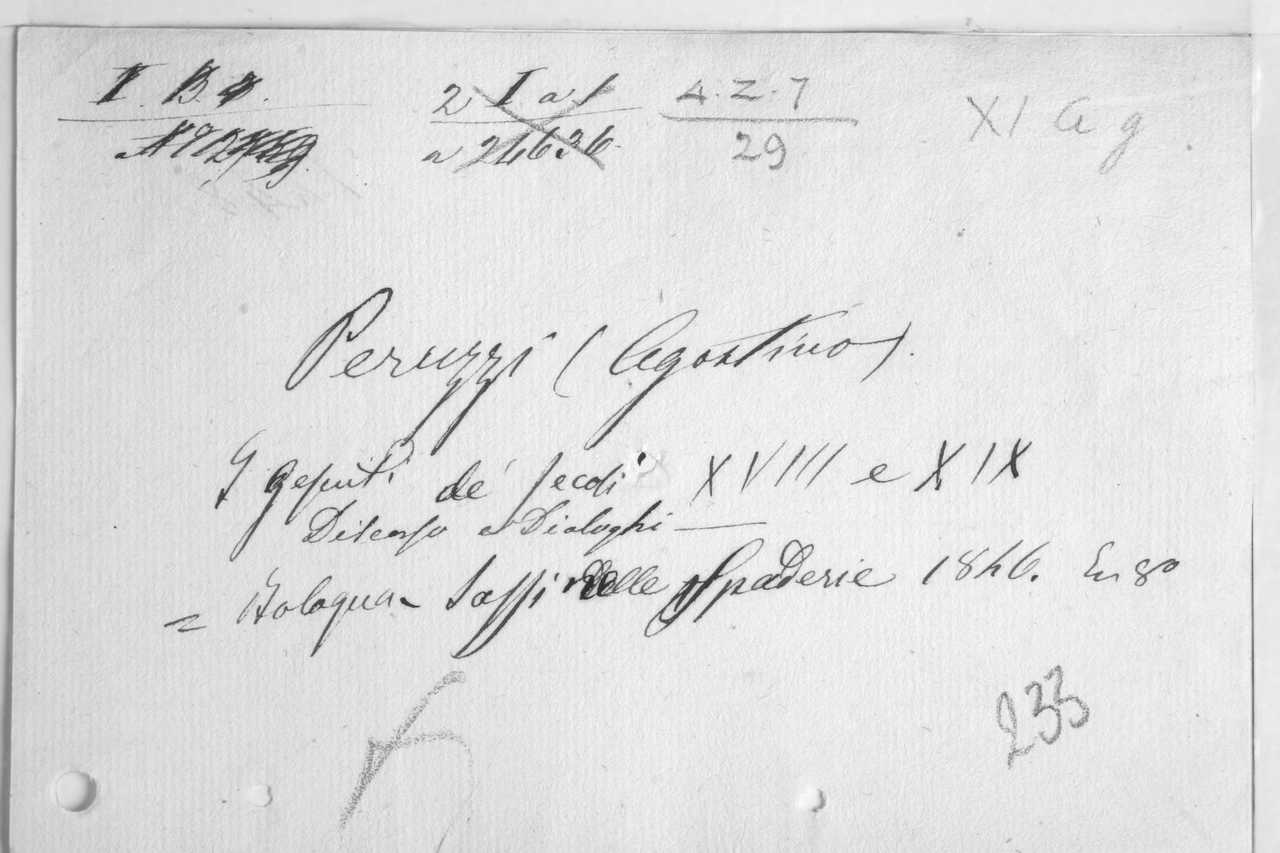 I. B. 4.
2 I a 1
a 24636.
4. Z. 7
29
XI a g
Peruzzi (Agostino).
I Gesuiti dé secoli XVIII e XIX
Discorso e Dialoghi —
= Bologna - Sassi nelle Spaderie 1846. In 8o
233